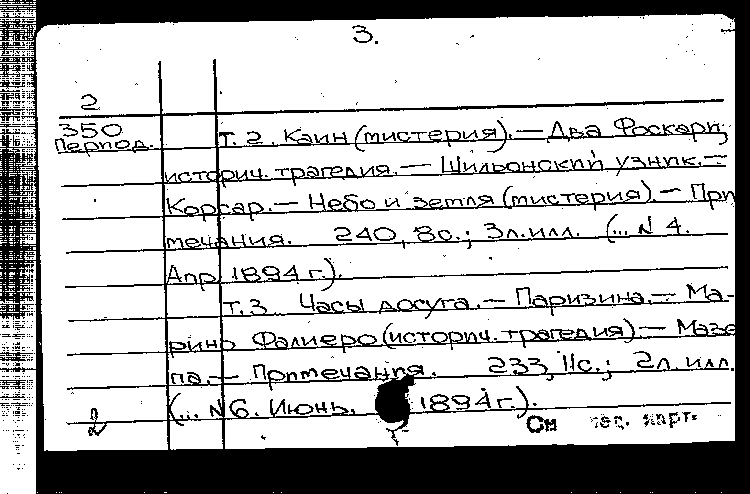 3.
2
350
Период.
Т. 2. Каин (мистерия). — Два Фоскари,
историч. трагедия. — Шильонский узник. —
Корсар. — Небо и земля (мистерия). — При
мечания. 240, 8с.; 3л. илл. (... N 4.
Апр. 1894 г.).
Т. 3. Часы досуга. — Паризина. — Ма-
рино Фалиеро (историч. трагедия). — Мазе
па. — Примечания. 233, IIс.; 2л. илл.
(... N 6. Июнь. 1894 г.).
2
См карт.